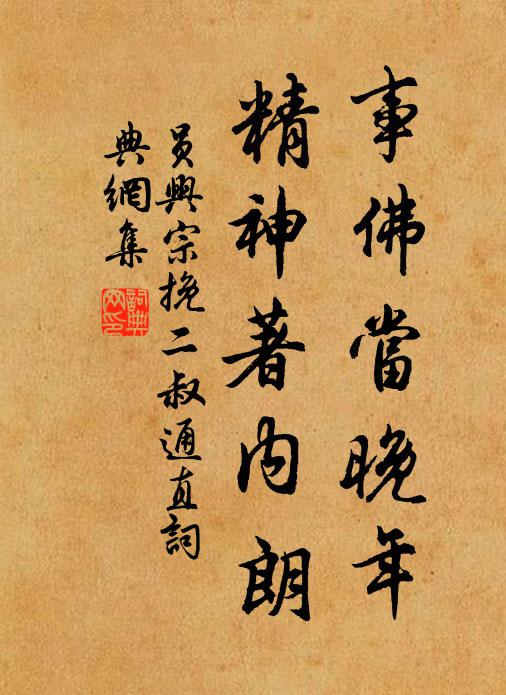 事佛當晚年
精神著內朗
員興宗挽二叔通直詞
典網集
詞典網印